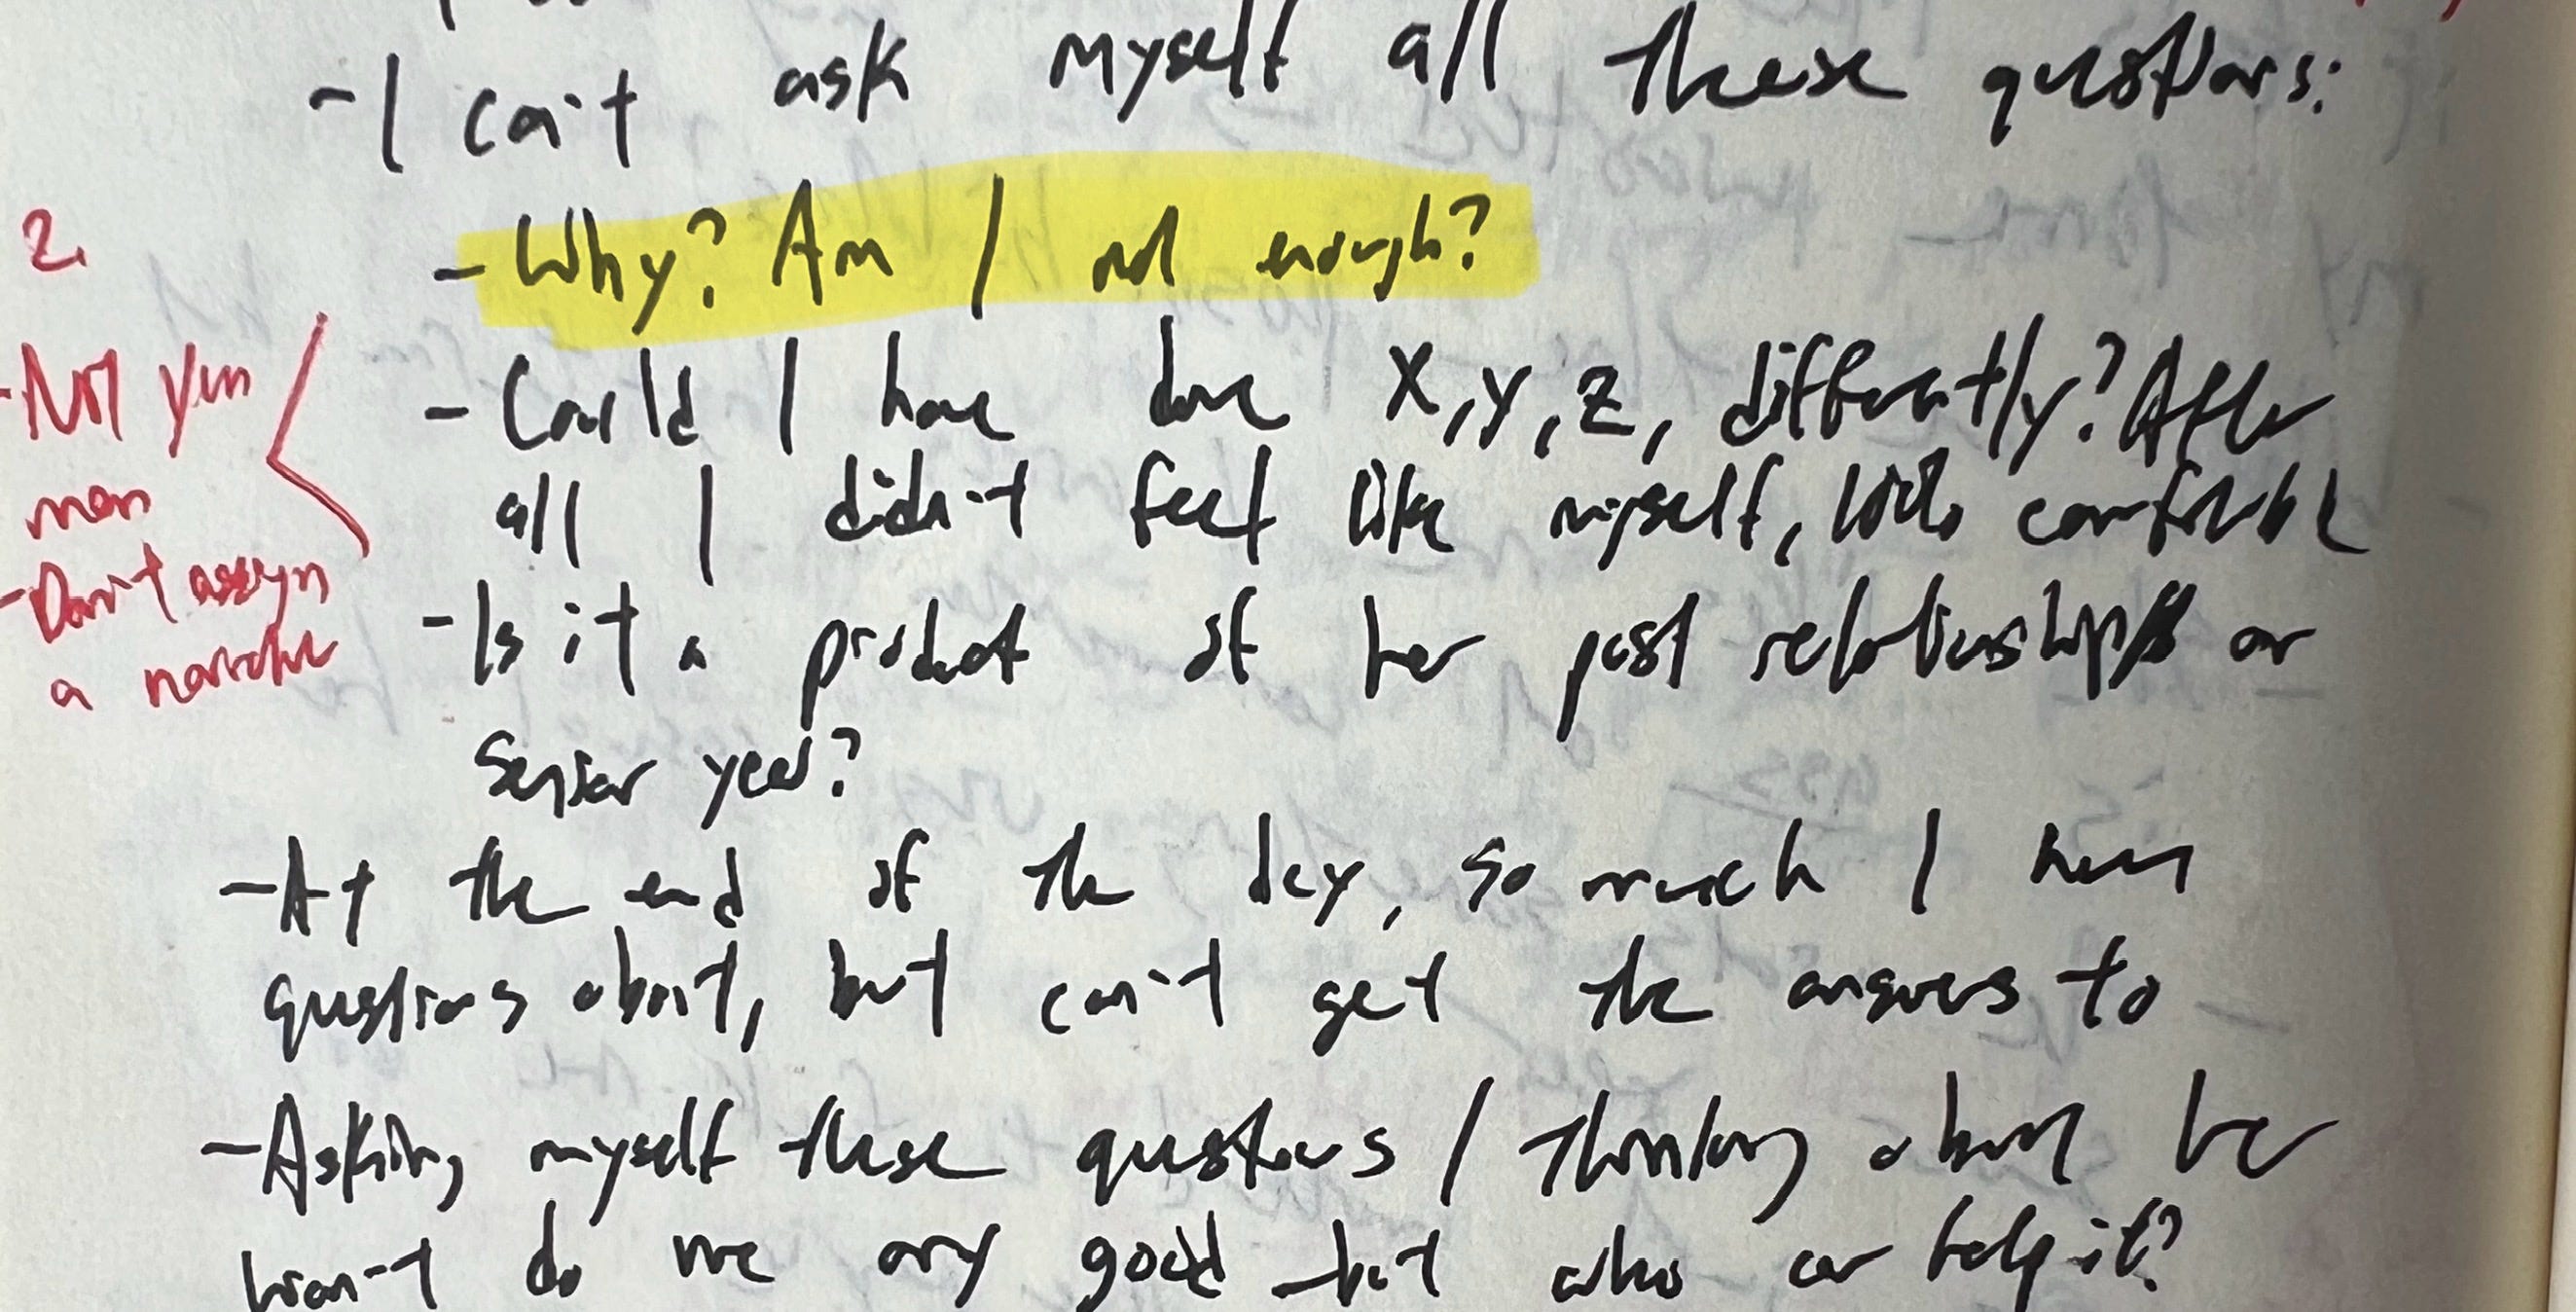 -I can't ask myself all these questions:
-Why? Am I not enough?
-Could I have done X, Y, Z, differently? After
all I didn't feel like myself, comfortable
-Is it a product of her past relationships or
Senior year?
-At the end of the day, so much I have
questions about, but can't get the answers to
-Asking myself these questions / Thinking about her
won't do me any good -but who can help it?
2.
-Not
man
-Don't assign
a narrative